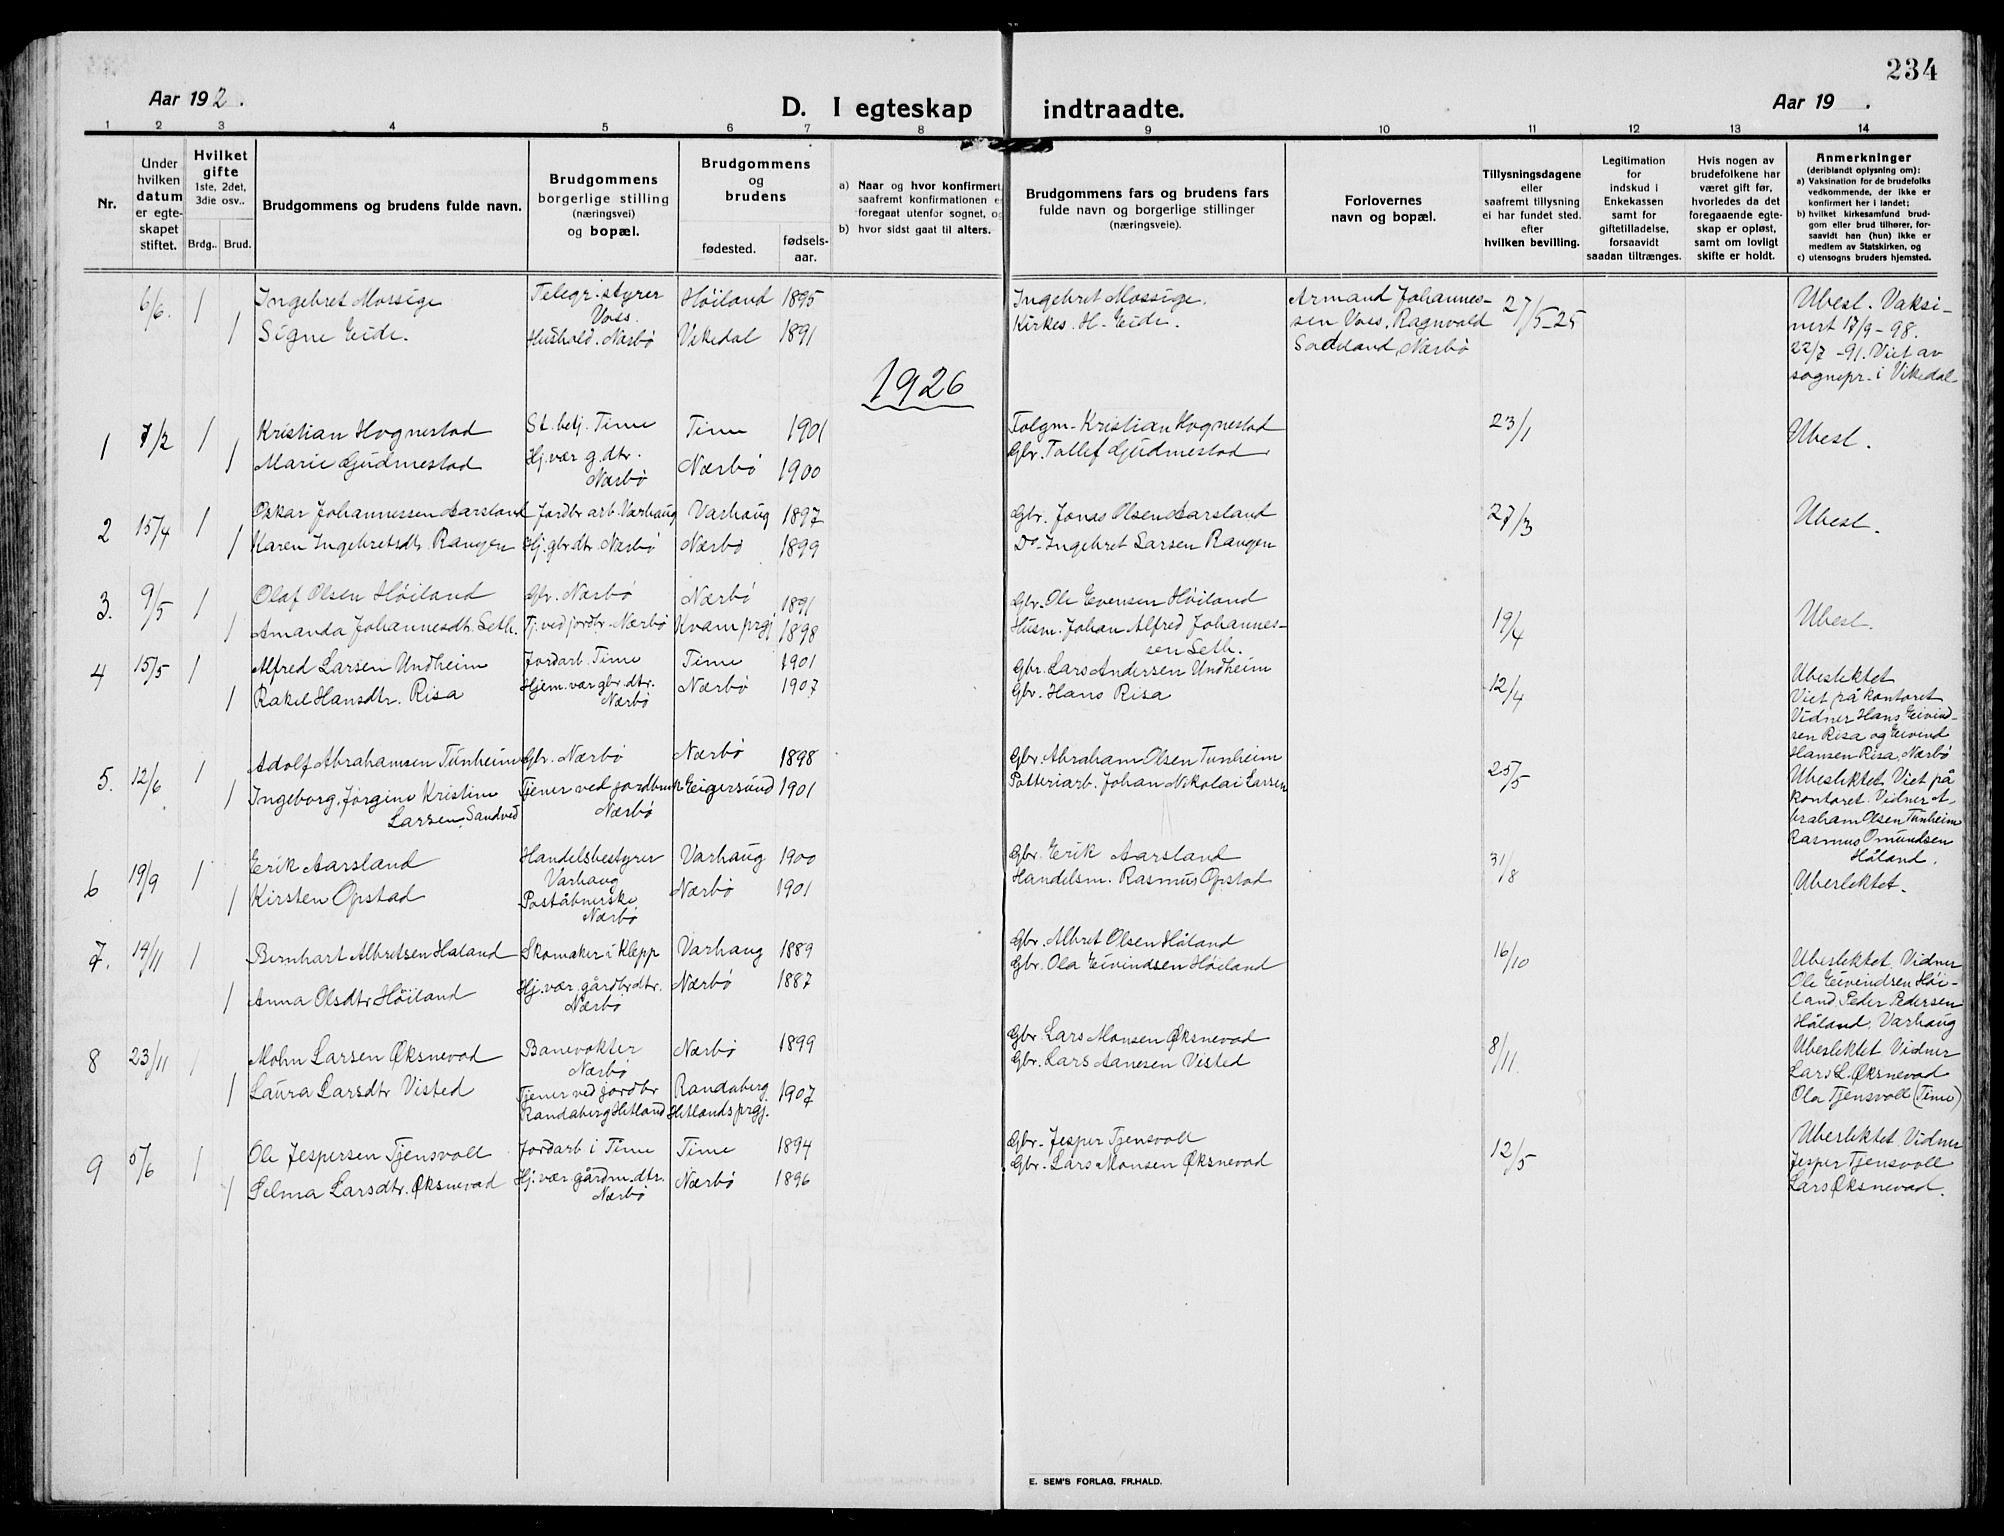 234
Aar 192 .
D. I egteskap indtraadte.
Aar 19 .
1 2 3 4 5 6 7 8 9 10 11 12 13 14
Nr.
Under hvilken datum er egte-skapet stiftet.
Hvilket gifte
1ste, 2det, 3die osv..
Brdg.. Brud.
Brudgommens og brudens fulde navn.
Brudgommens borgerlige stilling (næringsvei) og bopæl.
Brudgommens og brudens
fødested.
fødsels-aar.
a) Naar og hvor konfirmert, saafremt konfirmationen foregaat utenfor sognet,
b) hvor sidst gaat til alters.
Brudgommens fars og brudens fars fulde navn og borgerlige stillinger (næringsveie).
Forlovernes navn og bopæl.
Tillysningsdagene eller saafremt tillysning ei har fundet sted. efter hvilken bevilling.
Legitimation for indskud i Enkekassen samt for giftetilladelse, forsaavidt saadan tiltrænges.
Hvis nogen av brudefolkene har været gift før, hvorledes da det foregaaende egte-skap er opløst, samt om lovligt skifte er holdt.
Anmerkninger (deriblandt oplysning om):
a) Vaksination for de brudefolks vedkommende, der ikke er konfirmert her i landet;
b) hvilket kirkesamfund brud-gom eller brud tilhører, for-saavidt han (hun) ikke er medlem av Statskirken, og
c) utensogns bruders hjemsted.
6/6. 1 Ingebret Mossige Telegr. styrer Voss. Høiland 1895 Ingebret Mossige. Armand Johannes- 27/5-25 Ubesl. Vaksi-
1 Signe Eide. Hushold. Nærbø Vikedal 1891 Kirkes. H. Eide. sen Voss, Ragnvald nert 17/9-98.
Nærbø 22/7-91. Viet av
sognepr. i Vikedal
1926
1 7/2 1 Kristian Hognestad St. betj. Time Time 1901 Kristian Hognestad 23/1 Ubesl.
1 Marie Gudmestad Hj. vær g. dtr. Nærbø Nærbø 1900 Gbr. Tollef Gudmestad
2 15/4 1 Oskar Johannessen Aarsland Jordbr arb. Varhaug Varhaug 1897 Gbr. Jonas Olsen Aarsland 27/3 Ubesl.
1 Karen Ingebretsdtr. Rangen Hj. gbr dtr. Nærbø Nærbø 1899 Do- Ingebret Larsen Rangen
3. 9/5 1 Olaf Olsen Høiland Gbr. Nærbø Nærbø 1891 Gbr. Ole Evensen Høiland 19/4 Ubesl.
1 Amanda Johannesdtr. Seth. Tj. ved jordbr. Nærbø Kvam prgj 1898 Husm. Johan Alfred Johannes-
sen Seth.
4 15/5 1 Alfred Larsen Undheim Jordarb. Time Time 1901 Gbr. Lars Andersen Undheim 12/4 Ubeslektet
1 Rakel Hansdtr. Risa Hjem. vær gbr. dtr. Nærbø Nærbø 1907 Gbr. Hans Risa Viet på kontoret
Vidner Hans Eivind-
sen Risa og Eivind
Hansen Risa, Nærbø
5. 12/6 1 Adolf Abrahamsen Tunheim Gbr. Nærbø Nærbø 1898 Gbr. Abraham Olsen Tunheim 25/5 Ubeslektet. Viet på
1 Ingeborg Jørgine Kristine Tjener ved jordbruk Eigersund 1901 Potteriarb. Johan Nikolai Larsen kontoret. Vidner A-
Larsen, Sandved Nærbø braham Olsen Tunheim
Rasmus Omundsen
Håland.
6 19/9 1 Erik Aarsland Handelsbestyrer Varhaug Varhaug 1900 Gbr. Erik Aarsland 31/8 Ubeslektet.
1 Kirsten Opstad Poståbnerske Nærbø Nærbø 1901 Handelsm. Rasmus Opstad
7. 14/11 1 Bernhart Albretsen Håland Skomaker i Klepp Varhaug 1889 Gbr. Albret Olsen Håland 16/10 Ubeslektet Vidner
1 Anna Olsdtr Høiland Hj. vær. gårdbr dtr. Nærbø Nærbø 1887 Gbr. Ola Eivindsen Høiland Ole Eivindsen Høi-
land Peder Pedersen
Håland, Varhaug
8 23/11 1 Mohn Larsen Øksnevad Banevokter Nærbø Nærbø 1899 Gbr Lars Monsen Øksnevad 8/11. Ubeslektet Vidner
1 Laura Larsdtr Visted Tjener ved jordbr Randaberg Hetland Randaberg Hetlands prgj. 1907 Gbr. Lars Aanesen Visted Lars L. Øksnevad
Ola Tjensvoll (Time)
9 5/6 1 Ole Jespersen Tjensvoll Jordarb i Time Time 1894 Gbr. Jesper Tjensvoll 12/5 Ubeslektet Vidner
1 Selma Larsdtr. Øksnevad Hj. vær gårdm. dtr. Nærbø Nærbø 1896 Gbr. Lars Monsen Øksnevad Jesper Tjensvoll
Lars Øksnevad.
E. SEM'S FORLAG, FR.HALD.